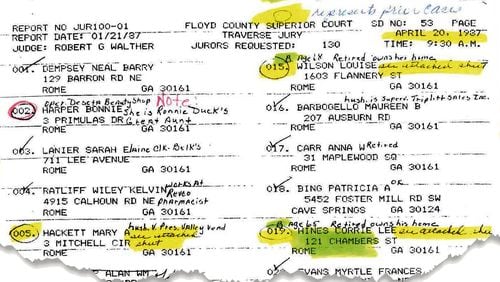 represents prior cases
REPORT NO JUR100-01 FLOYD COUNTY SUPERIOR COURT SD NO: 53 PAGE
REPORT DATE: 01/21/87 TRAVERSE JURY APRIL 20, 1987
JUDGE: ROBERT G WALTHER JURORS REQUESTED: 130 TIME: 9:30 A.M.
001. DEMPSEY NEAL BARRY
129 BARRON RD NE
ROME GA 30161
oper. Beauty Shop Note:
002. HARPER BONNIE She is Ronnie Duck's
3 PRIMULAS DR Great Aunt
ROME GA 30161
003. LANIER SARAH Elaine Clk-Belk's
711 LEE AVENUE
ROME GA 30161
works At
004. RATLIFF WILEY KELVIN Revco
4915 CALHOUN RD NE pharmacist
ROME GA 30161
hush. V. Pres. Valley Vend
005. HACKETT MARY see attached
3 MITCHELL CIR sheet
ROME GA 30161
ALAN WM
B Age 68 Retired owns her home
015. WILSON LOUISE see attached sheet
1603 FLANNERY ST
ROME GA 30161
hush. is Super. Triplett Sales Inc.
016. BARBOGELLO MAUREEN B
207 AUSBURN RD
ROME GA 30161
017. CARR ANNA W Retired
31 MAPLEWOOD SQ
ROME GA 30161
OK
018. BING PATRICIA A
5452 FOSTER MILL RD SW
CAVE SPRINGS GA 30124
B Age 65 Retired owns his home
019. HINES CORRIE LEE see attached she
121 CHAMBERS ST
ROME GA 30161
EVANS MYRTLE FRANCES